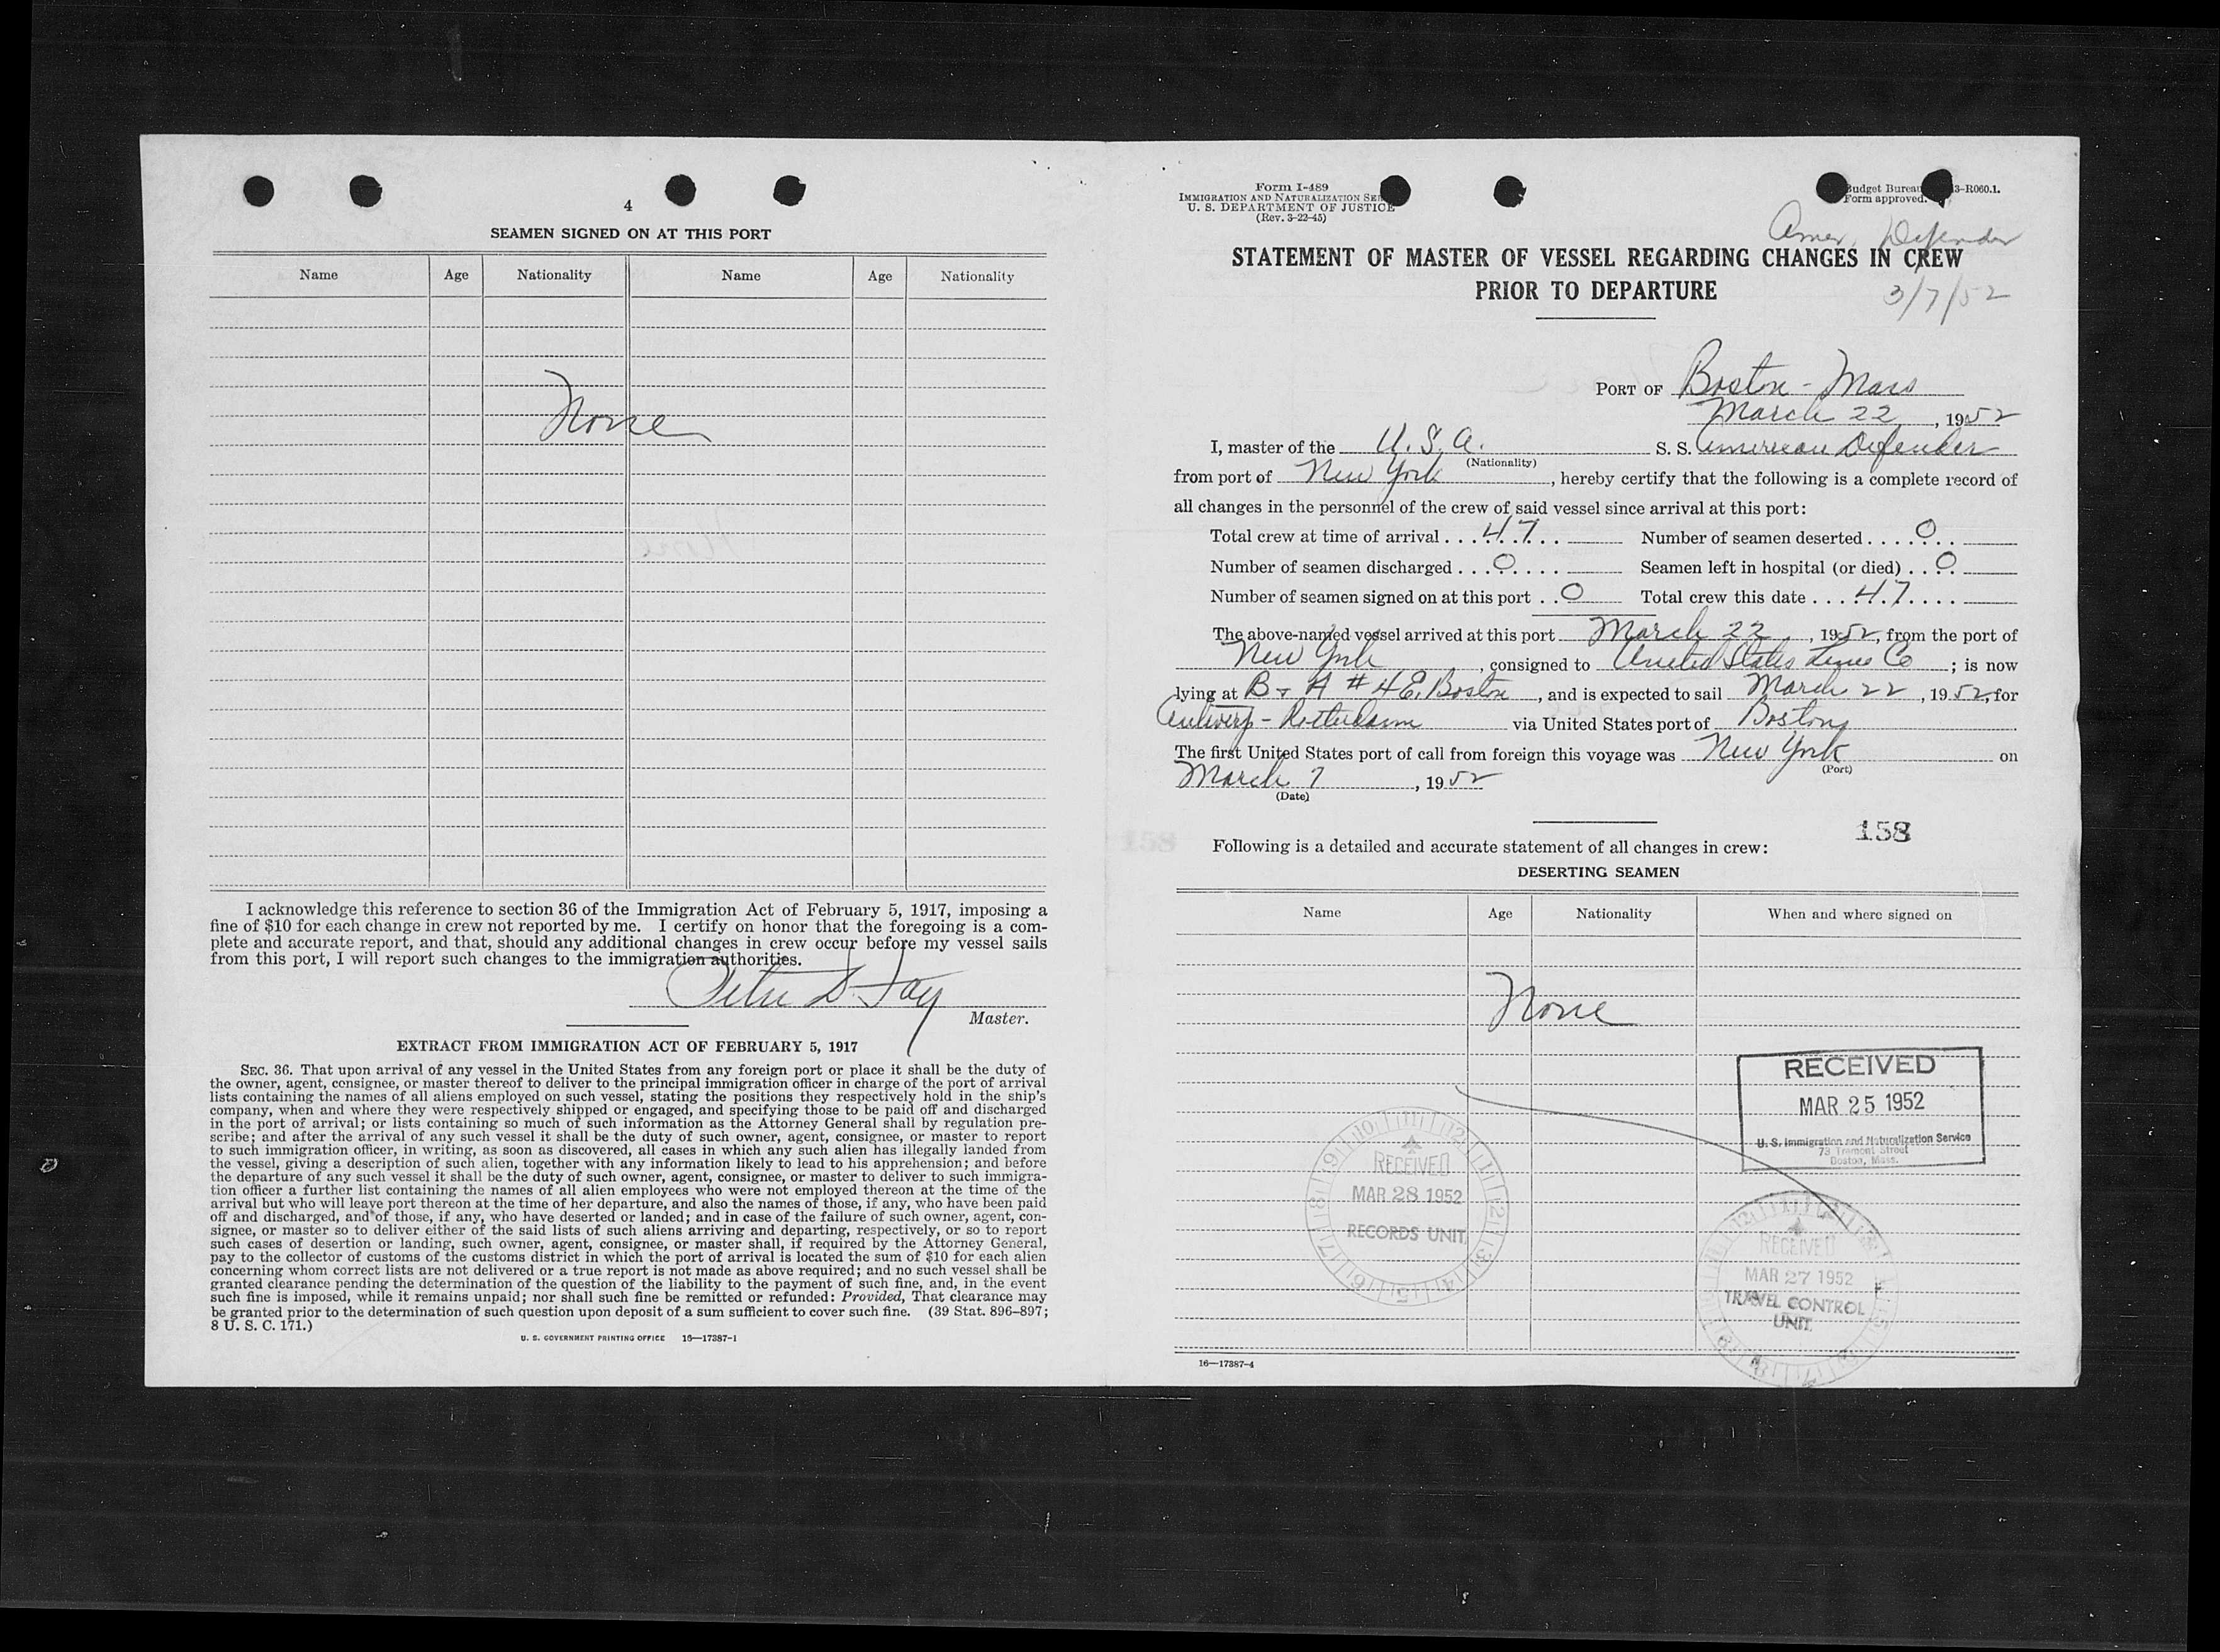 4
SEAMEN SIGNED ON AT THIS PORT
Name Age Nationality Name Age Nationality
None
I acknowledge this reference to section 36 of the Immigration Act of February 5, 1917, imposing a
fine of $10 for each change in crew not reported by me. I certify on honor that the foregoing is a com-
plete and accurate report, and that, should any additional changes in crew occur before my vessel sails
from this port, I will report such changes to the immigration authorities.
Peter D. Fay
Master.
EXTRACT FROM IMMIGRATION ACT OF FEBRUARY 5, 1917
SEC. 36. That upon arrival of any vessel in the United States from any foreign port or place it shall be the duty of
the owner, agent, consignee, or master thereof to deliver to the principal immigration officer in charge of the port of arrival
lists containing the names of all aliens employed on such vessel, stating the positions they respectively hold in the ship's
company, when and where they were respectively shipped or engaged, and specifying those to be paid off and discharged
in the port of arrival; or lists containing so much of such information as the Attorney General shall by regulation pre-
scribe; and after the arrival of any such vessel it shall be the duty of such owner, agent, consignee, or master to report
to such immigration officer, in writing, as soon as discovered, all cases in which any such alien has illegally landed from
the vessel, giving a description of such alien, together with any information likely to lead to his apprehension; and before
the departure of any such vessel it shall be the duty of such owner, agent, consignee, or master to deliver to such immigra-
tion officer a further list containing the names of all alien employees who were not employed thereon at the time of the
arrival but who will leave port thereon at the time of her departure, and also the names of those, if any, who have been paid
off and discharged, and of those, if any, who have deserted or landed; and in case of the failure of such owner, agent, con-
signee, or master so to deliver either of the said lists of such aliens arriving and departing, respectively, or so to report
such cases of desertion or landing, such owner, agent, consignee, or master shall, if required by the Attorney General,
pay to the collector of customs of the customs district in which the port of arrival is located the sum of $10 for each alien
concerning whom correct lists are not delivered or a true report is not made as above required; and no such vessel shall be
granted clearance pending the determination of the question of the liability to the payment of such fine, and, in the event
such fine is imposed, while it remains unpaid; nor shall such fine be remitted or refunded: Provided, That clearance may
be granted prior to the determination of such question upon deposit of a sum sufficient to cover such fine. (39 Stat. 896–897;
8 U. S. C. 171.)
U. S. GOVERNMENT PRINTING OFFICE 16—17387-1
Form I-489
IMMIGRATION AND NATURALIZATION SE
U. S. DEPARTMENT OF JUSTICE
(Rev. 3-22-45)
Budget Bureau 3-R060.1.
Form approved.
Amer. Defender
STATEMENT OF MASTER OF VESSEL REGARDING CHANGES IN CREW
PRIOR TO DEPARTURE
3/7/52
PORT OF Boston - Mass
March 22, 1952
I, master of the U. S. A. S. S. American Defender
(Nationality)
from port of New York, hereby certify that the following is a complete record of
all changes in the personnel of the crew of said vessel since arrival at this port:
Total crew at time of arrival . . . 47 . . Number of seamen deserted . . . . 0 . .
Number of seamen discharged . . . 0 . . . . Seamen left in hospital (or died) . . 0 .
Number of seamen signed on at this port . . 0 Total crew this date . . . . 47 . . . .
The above-named vessel arrived at this port March 22, 1952, from the port of
New York, consigned to United States Lines Co; is now
lying at B + A # 4 E. Boston, and is expected to sail March 22, 1952, for
Antwerp - Rotterdam via United States port of Boston
The first United States port of call from foreign this voyage was New York on
(Port)
March 7, 1952
(Date)
158
Following is a detailed and accurate statement of all changes in crew:
DESERTING SEAMEN
Name Age Nationality When and where signed on
None
RECEIVED
MAR 25 1952
U. S. Immigration and Naturalization Service
73 Tremont Street
Boston, Mass.
RECEIVED
MAR 28 1952
RECORDS UNIT
RECEIVED
MAR 27 1952
TRAVEL CONTROL
UNIT
16—17387-4